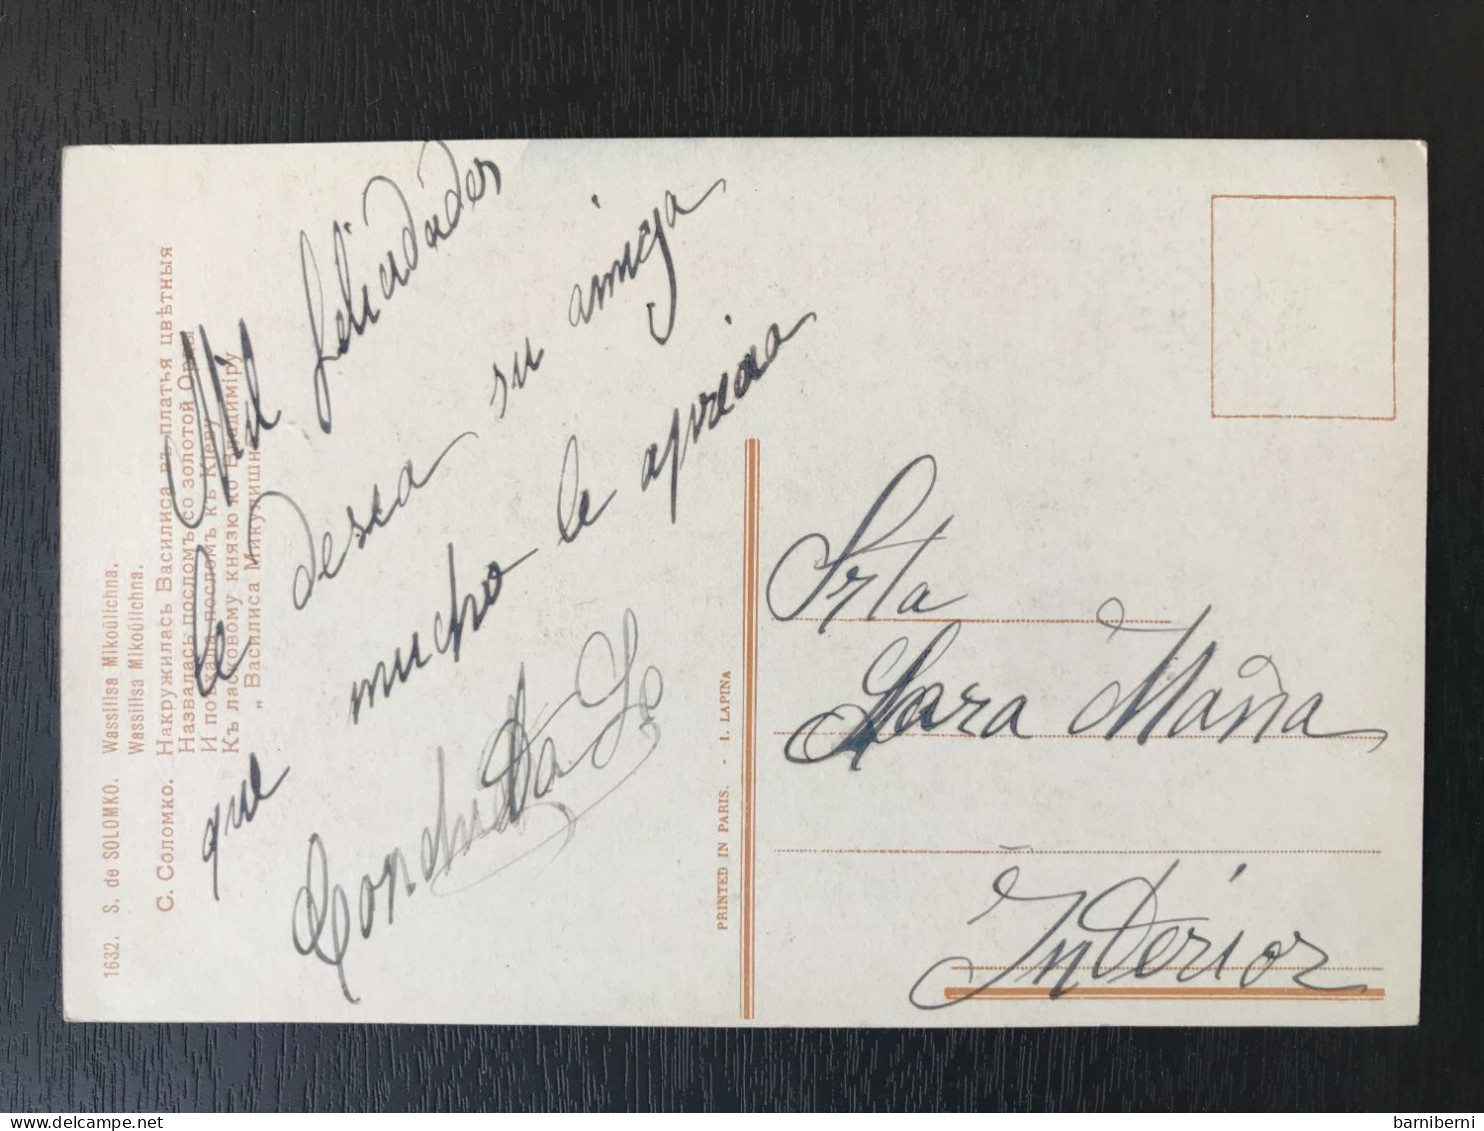 1632. S. de SOLOMKO. Wassilisa Mikoûlichna.
Wassilisa Mikoûlichna.
С. Соломко. Накружилась Василиса въ платья цвѣтныя
Назвалась посломъ со золотой Орды
И поѣхала посломъ къ Кіеву
Къ ласковому князю ко Владиміру
„Василиса Микулишна“
Mil felicidades
le desea su amiga
que mucho le aprecia
Conchita
PRINTED IN PARIS. - I. LAPINA
Srta
Sara María
Interior
barniberni